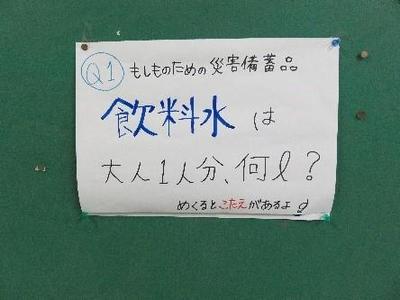 Q1 もしものための災害備蓄品
飲料水は
大人1人分、何ℓ?
めくるとこたえがあるよ